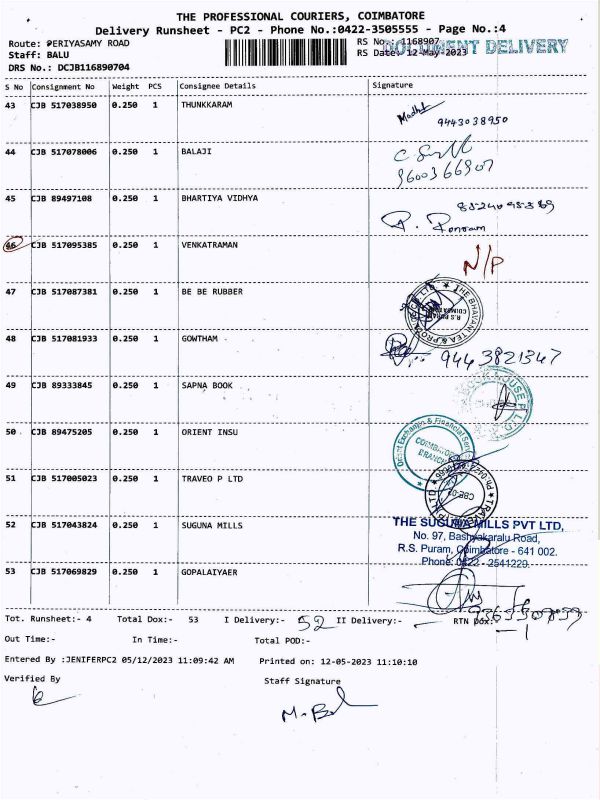 THE PROFESSIONAL COURIERS, COIMBATORE
Delivery Runsheet - PC2 - Phone No.:0422-3505555 - Page No.:4
Route: PERIYASAMY ROAD
RS No.: 1168907
DOCUMENT DELIVERY
Staff: BALU
RS Date: 12-May-2023
DRS No.: DCJB116890704
S No Consignment No Weight PCS Consignee Details Signature
43 CJB 517038950 0.250 1 THUNKKARAM
Madhu
9443038950
44 CJB 517078006 0.250 1 BALAJI
9600366907
45 CJB 89497108 0.250 1 BHARTIYA VIDHYA
P. Ponram
46 CJB 517095385 0.250 1 VENKATRAMAN
N/P
47 CJB 517087381 0.250 1 BE BE RUBBER
48 CJB 517081933 0.250 1 GOWTHAM
9443821347
49 CJB 89333845 0.250 1 SAPNA BOOK
50 CJB 89475205 0.250 1 ORIENT INSU
COIMBATORE
BRANCH
51 CJB 517005023 0.250 1 TRAVEO P LTD
52 CJB 517043824 0.250 1 SUGUNA MILLS
THE SUGUNA MILLS PVT LTD,
No. 97, Bashyakaralu Road,
R.S. Puram, Coimbatore - 641 002.
Phone: 0422 - 2541229.
53 CJB 517069829 0.250 1 GOPALAIYAER
Tot. Runsheet:- 4 Total Dox:- 53 I Delivery:- 52 II Delivery:- RTN Dox:- 1
Out Time:- In Time:- Total POD:-
Entered By :JENIFERPC2 05/12/2023 11:09:42 AM Printed on: 12-05-2023 11:10:10
Verified By Staff Signature